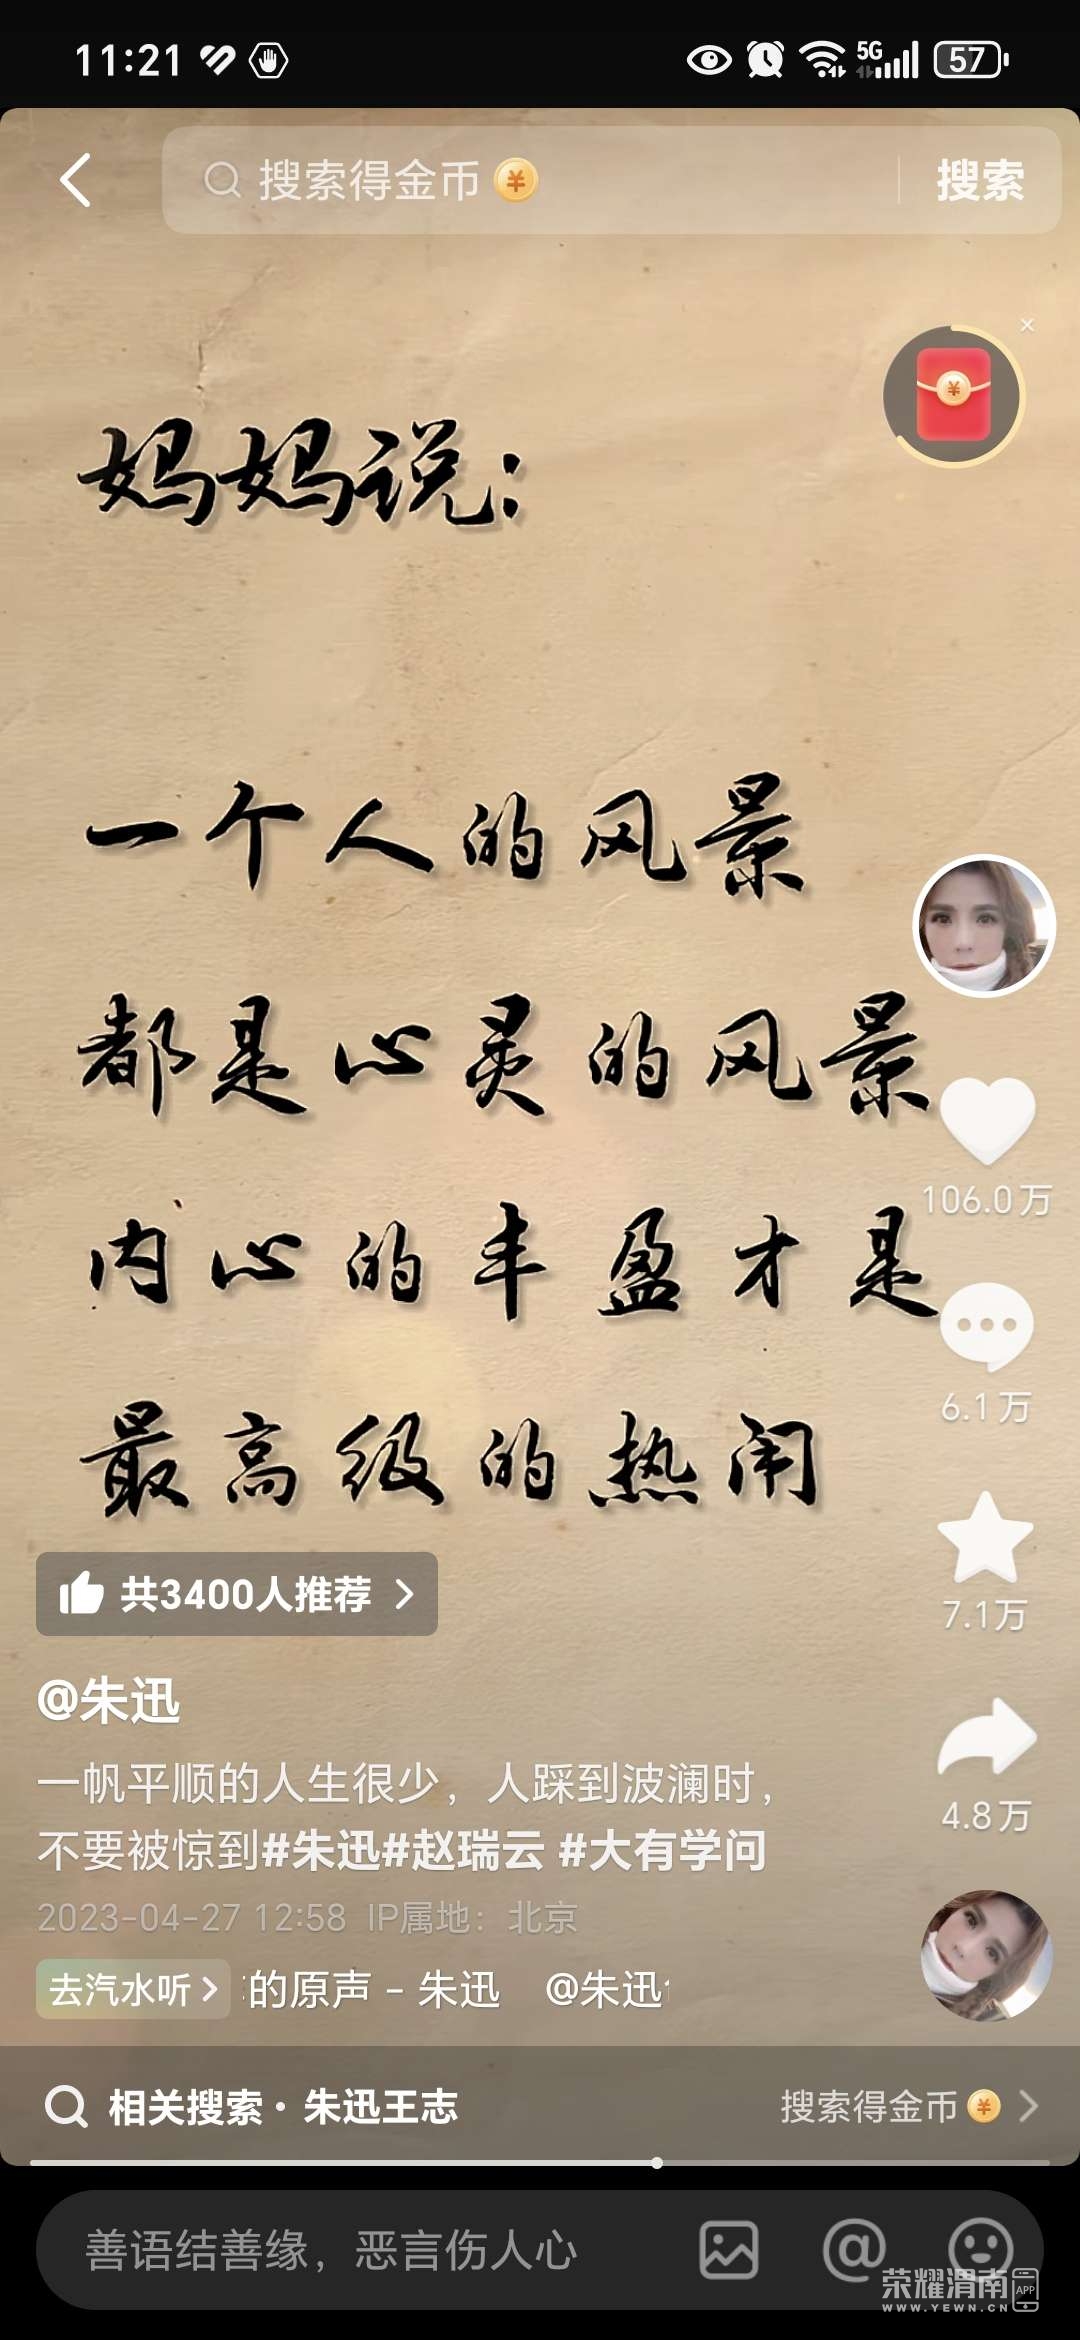 11:21
5G
57
搜索得金币
搜索
妈妈说：
一个人的风景
都是心灵的风景
106.0万
内心的丰盈才是
6.1万
最高级的热闹
共3400人推荐
7.1万
@朱迅
一帆平顺的人生很少，人踩到波澜时，
不要被惊到#朱迅#赵瑞云 #大有学问
4.8万
2023-04-27 12:58 IP属地：北京
去汽水听 的原声 - 朱迅 @朱迅
相关搜索· 朱迅王志 搜索得金币
善语结善缘，恶言伤人心
荣耀渭南 APP
WWW.YEWN.CN